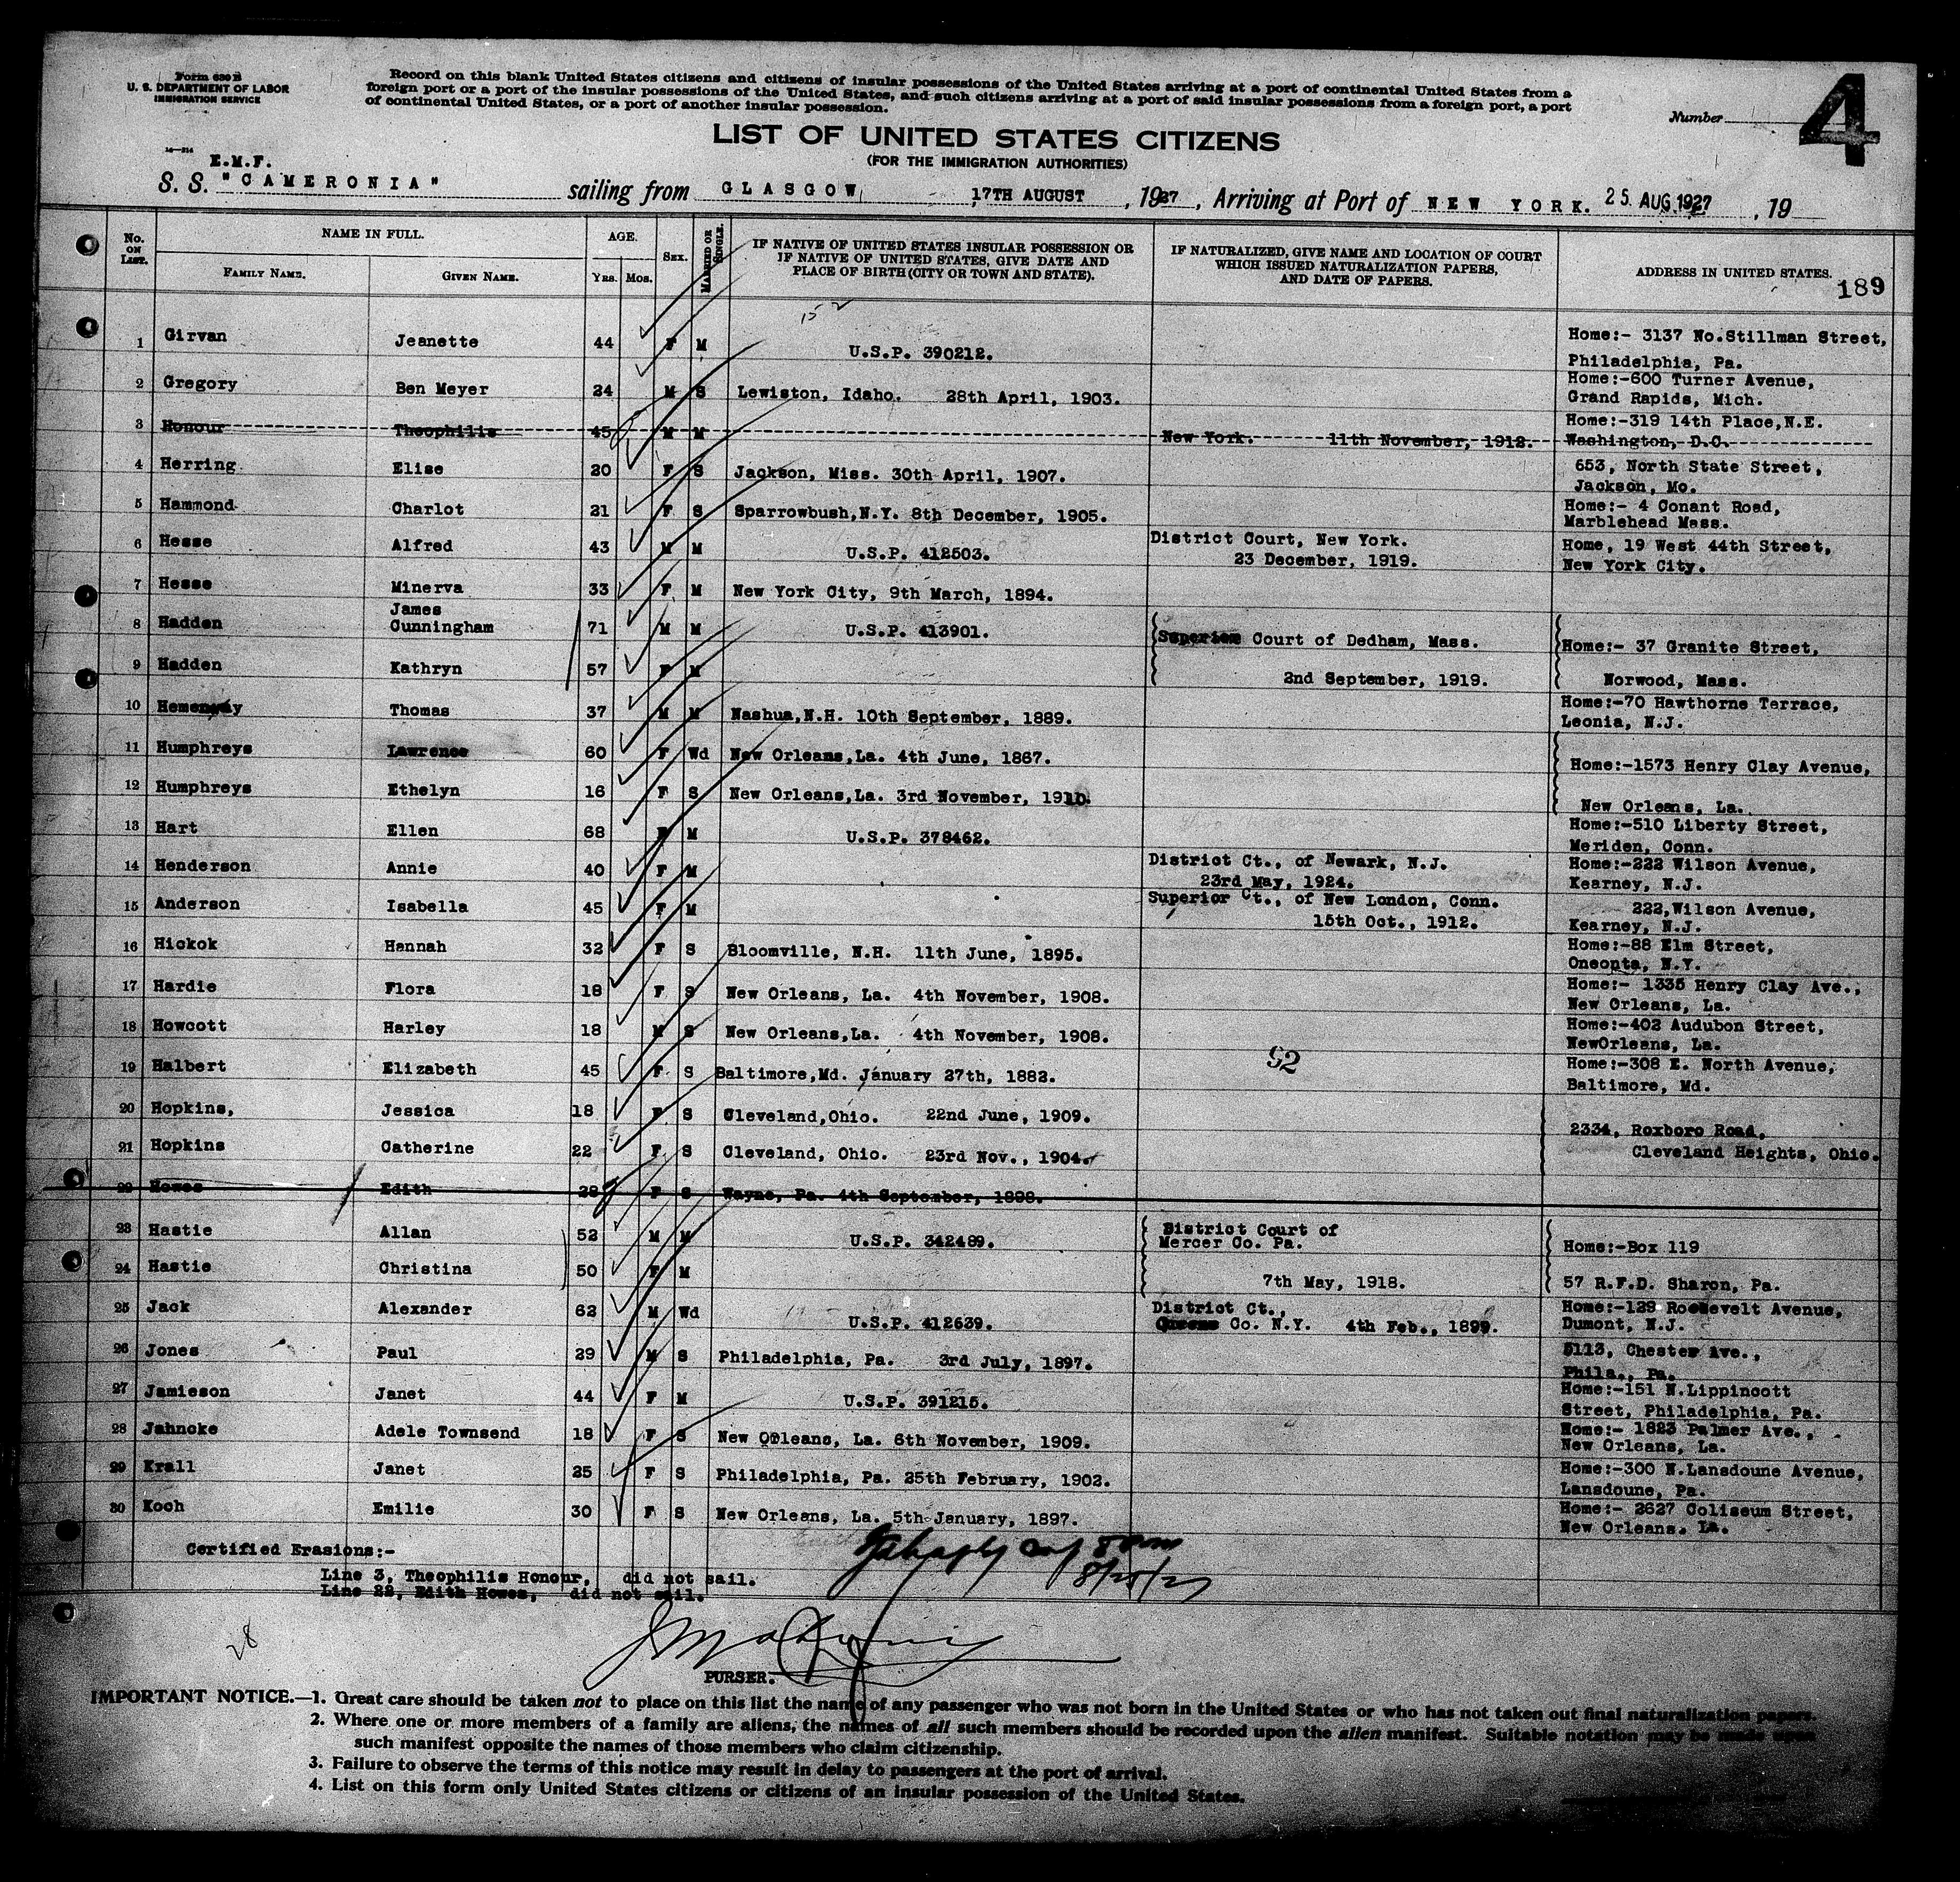 Form 630 B
U. S. DEPARTMENT OF LABOR
IMMIGRATION SERVICE
Record on this blank United States citizens and citizens of insular possessions of the United States arriving at a port of continental United States from a
foreign port or a port of the insular possessions of the United States, and such citizens arriving at a port of said insular possessions from a foreign port, a port
of continental United States, or a port of another insular possession.
Number 4
LIST OF UNITED STATES CITIZENS
(FOR THE IMMIGRATION AUTHORITIES)
E.M.F.
S. S. "CAMERONIA" sailing from GLASGOW, 17TH AUGUST, 1927, Arriving at Port of NEW YORK. 25 AUG 1927, 19
No. ON LIST. NAME IN FULL. AGE. SEX. MARRIED OR SINGLE. IF NATIVE OF UNITED STATES INSULAR POSSESSION OR IF NATIVE OF UNITED STATES, GIVE DATE AND PLACE OF BIRTH (CITY OR TOWN AND STATE). IF NATURALIZED, GIVE NAME AND LOCATION OF COURT WHICH ISSUED NATURALIZATION PAPERS, AND DATE OF PAPERS. ADDRESS IN UNITED STATES.
FAMILY NAME. GIVEN NAME. YRS. MOS.
189
1 Girvan Jeanette 44 F M U.S.P. 390212. Home:- 3137 No.Stillman Street, Philadelphia, Pa.
2 Gregory Ben Meyer 24 M S Lewiston, Idaho. 28th April, 1903. Home:-600 Turner Avenue, Grand Rapids, Mich.
3 Honour Theophilis 45 M M New York. 11th November, 1912. Home:-319 14th Place,N.E. Washington, D.C.
4 Herring Elise 20 F S Jackson, Miss. 30th April, 1907. 653, North State Street, Jackson, Mo.
5 Hammond Charlot 21 F S Sparrowbush,N.Y. 8th December, 1905. Home:- 4 Conant Road, Marblehead Mass.
6 Hesse Alfred 43 M M U.S.P. 412503. District Court, New York. 23 December, 1919. Home, 19 West 44th Street, New York City.
7 Hesse Minerva 33 F M New York City, 9th March, 1894.
8 Hadden James Cunningham 71 M M U.S.P. 413901. Superior Court of Dedham, Mass. Home:- 37 Granite Street,
9 Hadden Kathryn 57 F M 2nd September, 1919. Norwood, Mass.
10 Hemenway Thomas 37 M M Nashua,N.H. 10th September, 1889. Home:-70 Hawthorne Terrace, Leonia, N.J.
11 Humphreys Lawrence 60 F Wd New Orleans,La. 4th June, 1867. Home:-1573 Henry Clay Avenue,
12 Humphreys Ethelyn 16 F S New Orleans,La. 3rd November, 1910. New Orleans, La.
13 Hart Ellen 68 F M U.S.P. 378462. Home:-510 Liberty Street, Meriden, Conn.
14 Henderson Annie 40 F M District Ct., of Newark, N.J. 23rd May, 1924. Home:-222 Wilson Avenue, Kearney, N.J.
15 Anderson Isabella 45 F M Superior Ct., of New London, Conn. 15th Oct., 1912. 222,Wilson Avenue, Kearney, N.J.
16 Hickok Hannah 32 F S Bloomville, N.H. 11th June, 1895. Home:-88 Elm Street, Oneonta, N.Y.
17 Hardie Flora 18 F S New Orleans, La. 4th November, 1908. Home:- 1335 Henry Clay Ave., New Orleans, La.
18 Howcott Harley 18 M S New Orleans,La. 4th November, 1908. Home:-402 Audubon Street, NewOrleans, La.
19 Halbert Elizabeth 45 F S Baltimore,Md. January 27th, 1882. 52 Home:-308 E. North Avenue, Baltimore, Md.
20 Hopkins, Jessica 18 F S Cleveland,Ohio. 22nd June, 1909. 2334, Roxboro Road,
21 Hopkins Catherine 22 F S Cleveland, Ohio. 23rd Nov., 1904. Cleveland Heights, Ohio.
22 Howes Edith 28 F S Wayne, Pa. 4th September, 1898.
23 Hastie Allan 52 M M U.S.P. 342489. District Court of Mercer Co. Pa. Home:-Box 119
24 Hastie Christina 50 F M 7th May, 1918. 57 R.F.D. Sharon, Pa.
25 Jack Alexander 62 M Wd U.S.P. 412639. District Ct., Queens Co. N.Y. 4th Feb., 1899. Home:-129 Roosevelt Avenue, Dumont, N.J.
26 Jones Paul 29 M S Philadelphia, Pa. 3rd July, 1897. 5113, Chester Ave., Phila., Pa.
27 Jamieson Janet 44 F M U.S.P. 391215. Home:-151 N.Lippincott Street, Philadelphia, Pa.
28 Jahncke Adele Townsend 18 F S New Orleans, La. 6th November, 1909. Home:- 1823 Palmer Ave., New Orleans, La.
29 Krall Janet 25 F S Philadelphia, Pa. 25th February, 1902. Home:-300 N.Lansdoune Avenue, Lansdoune, Pa.
30 Koch Emilie 30 F S New Orleans, La. 5th January, 1897. Home:- 2627 Coliseum Street, New Orleans. La.
Certified Erasions:-
Line 3, Theophilis Honour, did not sail.
Line 22, Edith Howes, did not sail.
8/25/27
28
PURSER.
IMPORTANT NOTICE.—1. Great care should be taken not to place on this list the name of any passenger who was not born in the United States or who has not taken out final naturalization papers.
2. Where one or more members of a family are aliens, the names of all such members should be recorded upon the alien manifest. Suitable notation may be made upon
such manifest opposite the names of those members who claim citizenship.
3. Failure to observe the terms of this notice may result in delay to passengers at the port of arrival.
4. List on this form only United States citizens or citizens of an insular possession of the United States.